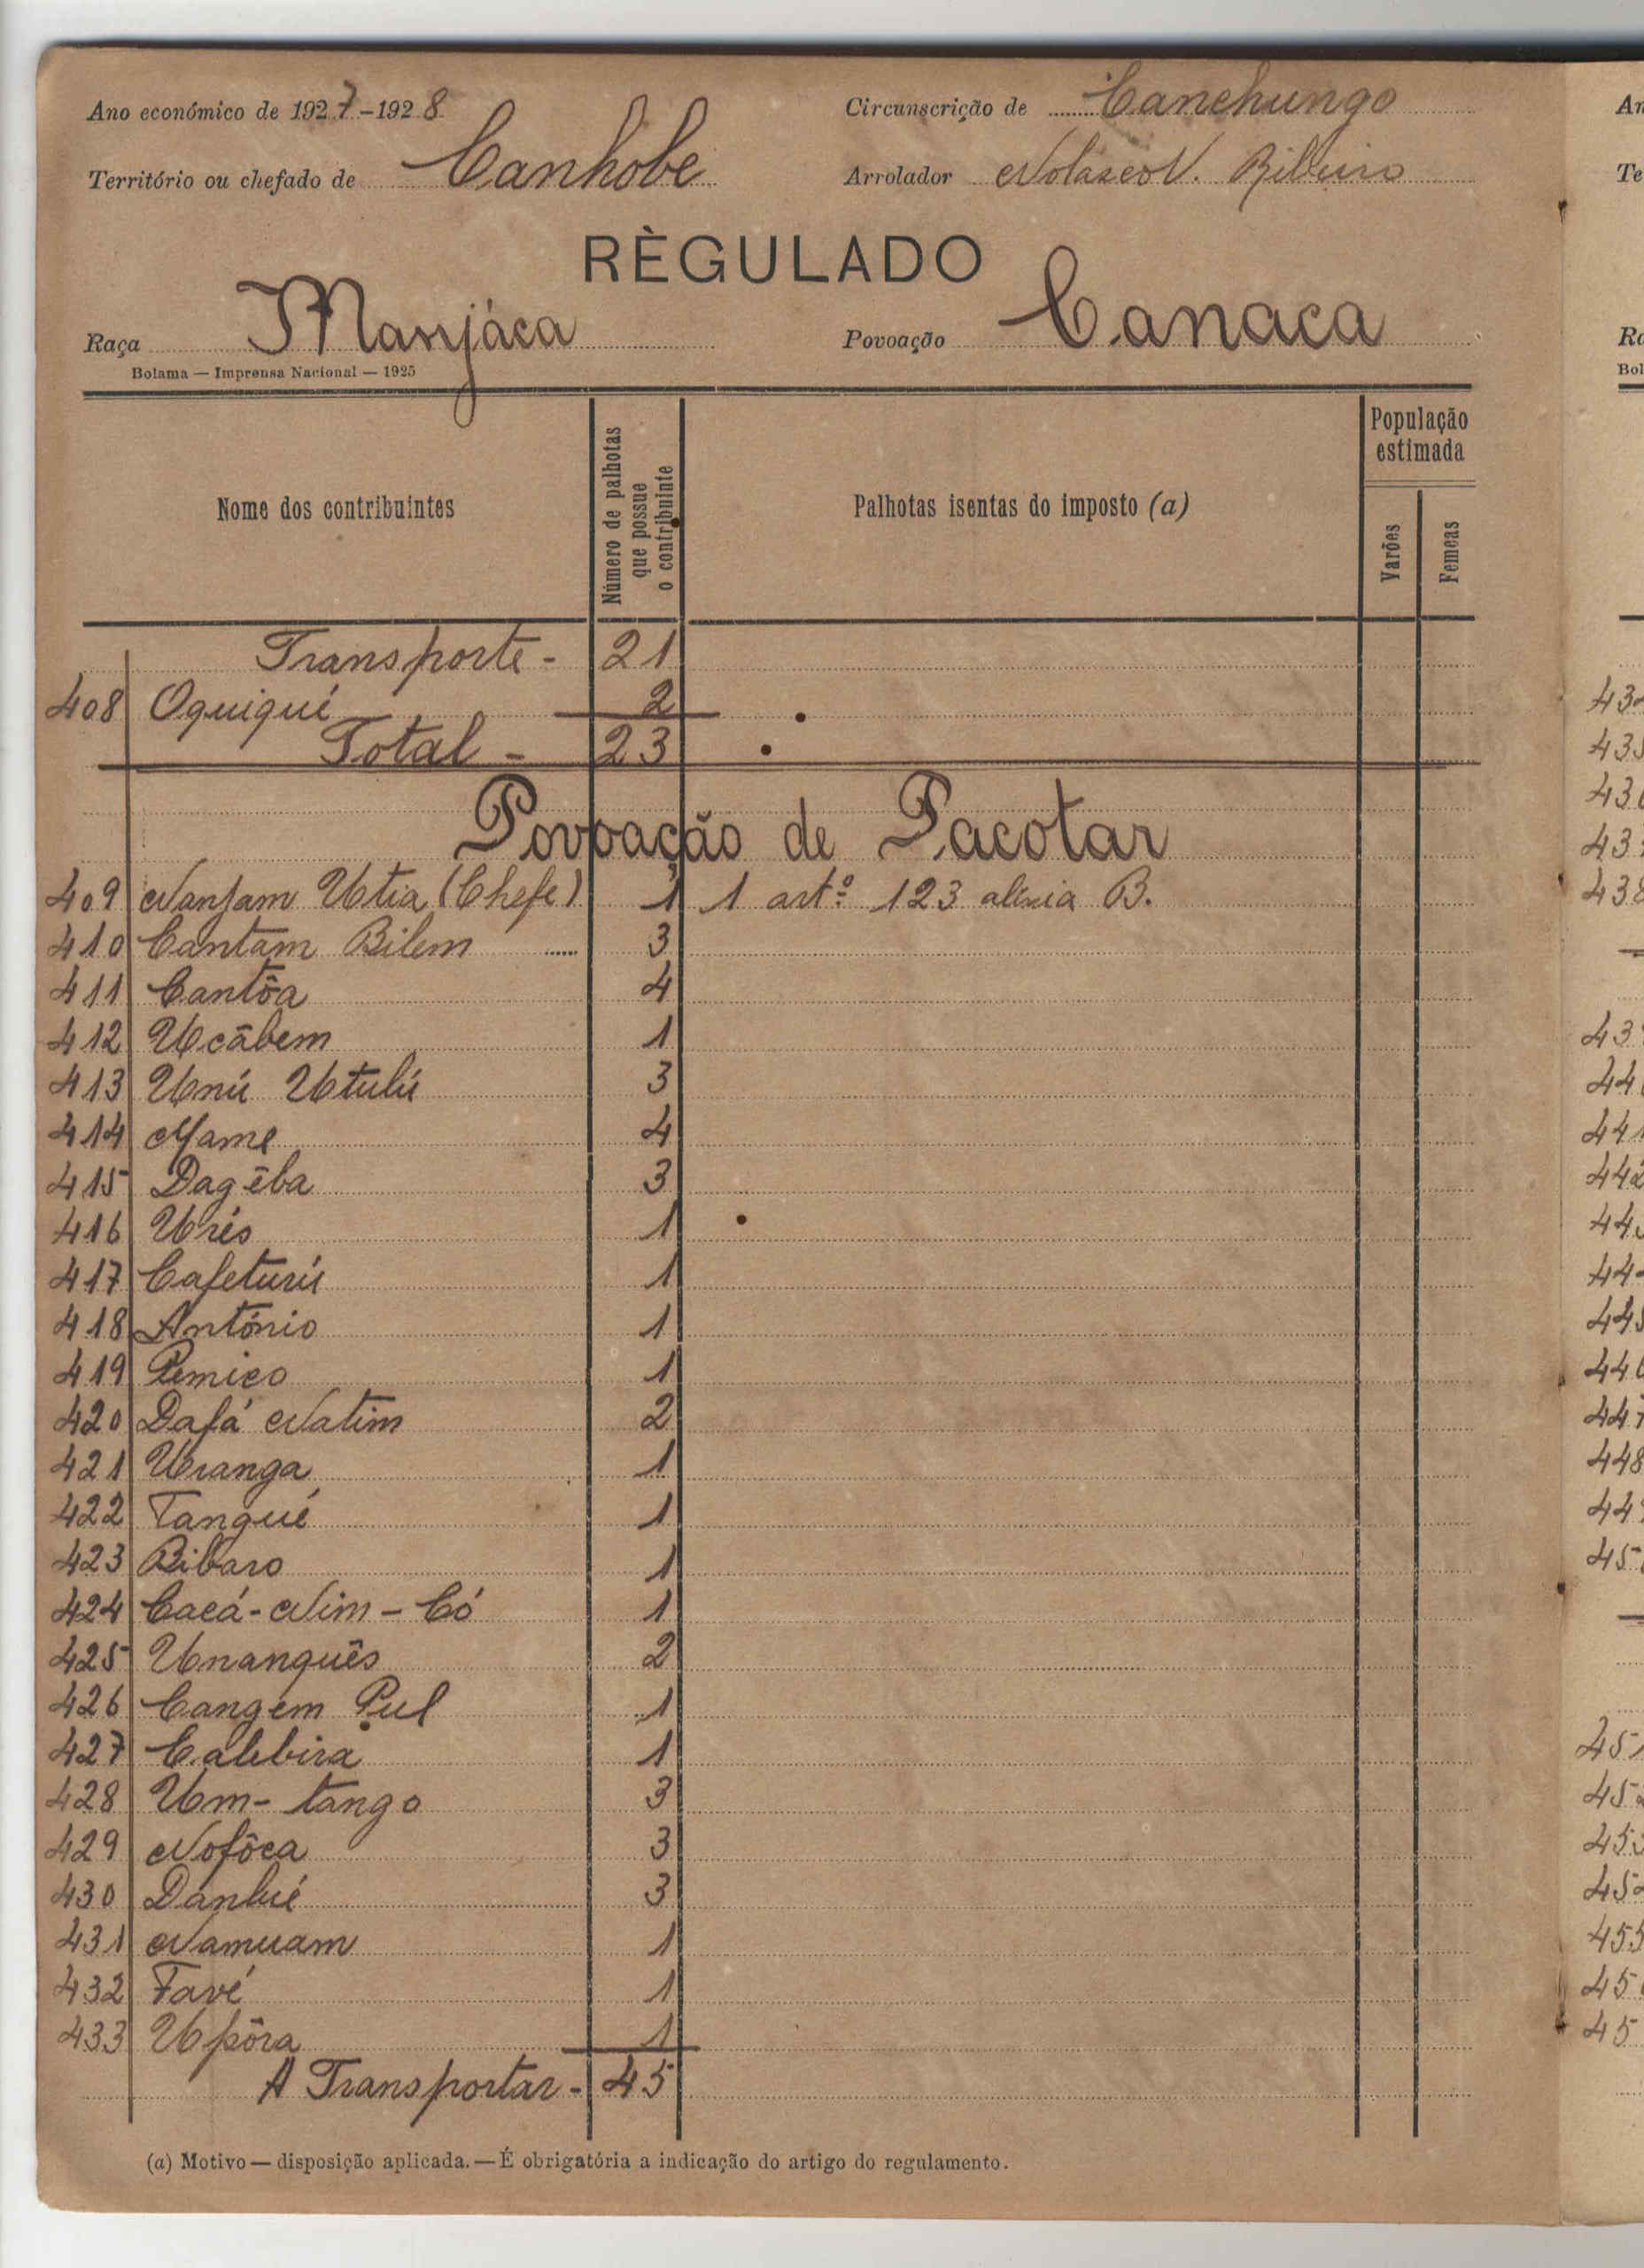 Ano económico de 1927-1928
Circunscrição de Canchungo
Território ou chefado de Canhobe
Arrolador Nolasco V. Ribeiro
RÈGULADO
Raça Manjáca
Povoação Canaca
Bolama — Imprensa Nacional — 1925
Nome dos contribuintes
Número de palhotas que possue o contribuinte
Palhotas isentas do imposto (a)
População estimada
Varões
Femeas
Transporte - 21
408 Oquiqué 2
Total - 23
Povoação de Pacotar
409 Nanjam Utia (Chefe) 1 1 artº 123 alinia B.
410 Cantam Bilem ..... 3
411 Cantôa 4
412 Ucãbem 1
413 Unú Utulú 3
414 Mame 4
415 Dagēba 3
416 Urés 1
417 Cafeturú 1
418 António 1
419 Pemico 1
420 Dafá Natim 2
421 Uranga 1
422 Tangué 1
423 Bibaro 1
424 Cacá-Nim-Có 1
425 Unanquês 2
426 Cangem Pul 1
427 Calebira 1
428 Um-tango 3
429 Nofôca 3
430 Danlué 3
431 Namuam 1
432 Favé 1
433 Upôra 1
A Transportar - 45
(a) Motivo — disposição aplicada. — É obrigatória a indicação do artigo do regulamento.